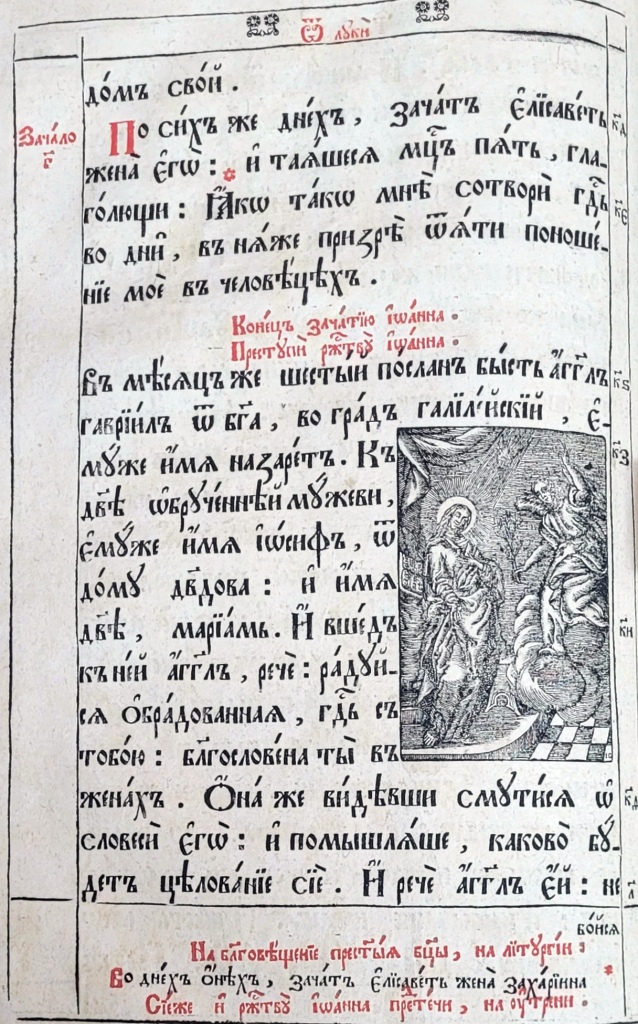 Ѿ лꙋкѝ
до́мъ сво́й .
Зача́ло г҃
По си́хъ же дне́хъ , зача́тъ є҆лїсаве́ть к҃д
жена̀ є҆гѡ̀ : и҆ таѧ́шесѧ мц҃ъ пѧ́ть , гла-
го́лющи : Ꙗ҆́кѡ та́кѡ мнѣ̀ сотворѝ гдⷭ҇ь к҃є
во дни̑ , въ нѧ́же призрѣ̀ ѿѧ́ти поноше́-
нїе моѐ въ человѣ́цѣхъ .
Коне́цъ зача́тїю і҆ѡа́нна .
Преступѝ рж҃твꙋ̀ і҆ѡа́нна .
Въ мѣ́сѧцъ же шесты́й по́сланъ бы́сть а҆́гг҃лъ к҃ѕ
гаврїи́лъ ѿ бг҃а , во гра́дъ галїле́йскїй , є҆-
мꙋ́же и҆́мѧ назаре́тъ . Къ к҃з
дв҃ѣ ѡ҆брꙋче́ннѣй мꙋ́жеви ,
є҆мꙋ́же и҆́мѧ і҆ѡ́сифъ , ѿ
до́мꙋ дв҃дова : и҆ и҆́мѧ
дв҃ѣ , марїа́мь . И҆ вше́дъ к҃и
къ не́й а҆́гг҃лъ , речѐ : ра́дꙋй-
сѧ ѻ҆бра́дованнаѧ , гдⷭ҇ь съ
тобо́ю : блг҃ослове́на ты̀ въ
жена́хъ . Ѻ҆на́ же ви́дѣвши смꙋти́сѧ ѡ҆
словесѝ є҆гѡ̀ : и҆ помышлѧ́ше , каково̀ бꙋ́-
детъ цѣлова́нїе сїѐ . И҆ речѐ а҆́гг҃лъ є҆́й : не л҃
бо́йсѧ
На бл҃говѣ́щенїе прест҃ы́ѧ бц҃ы , на лїтꙋргі́и :
Во дне́хъ ѻ҆́нѣхъ , зача́тъ є҆лїсаве́ть жена̀ заха́рїина
Сїе́же и҆ рж҃твꙋ̀ і҆ѡа́нна прⷣте́чи , на ᲂу҆́трени .